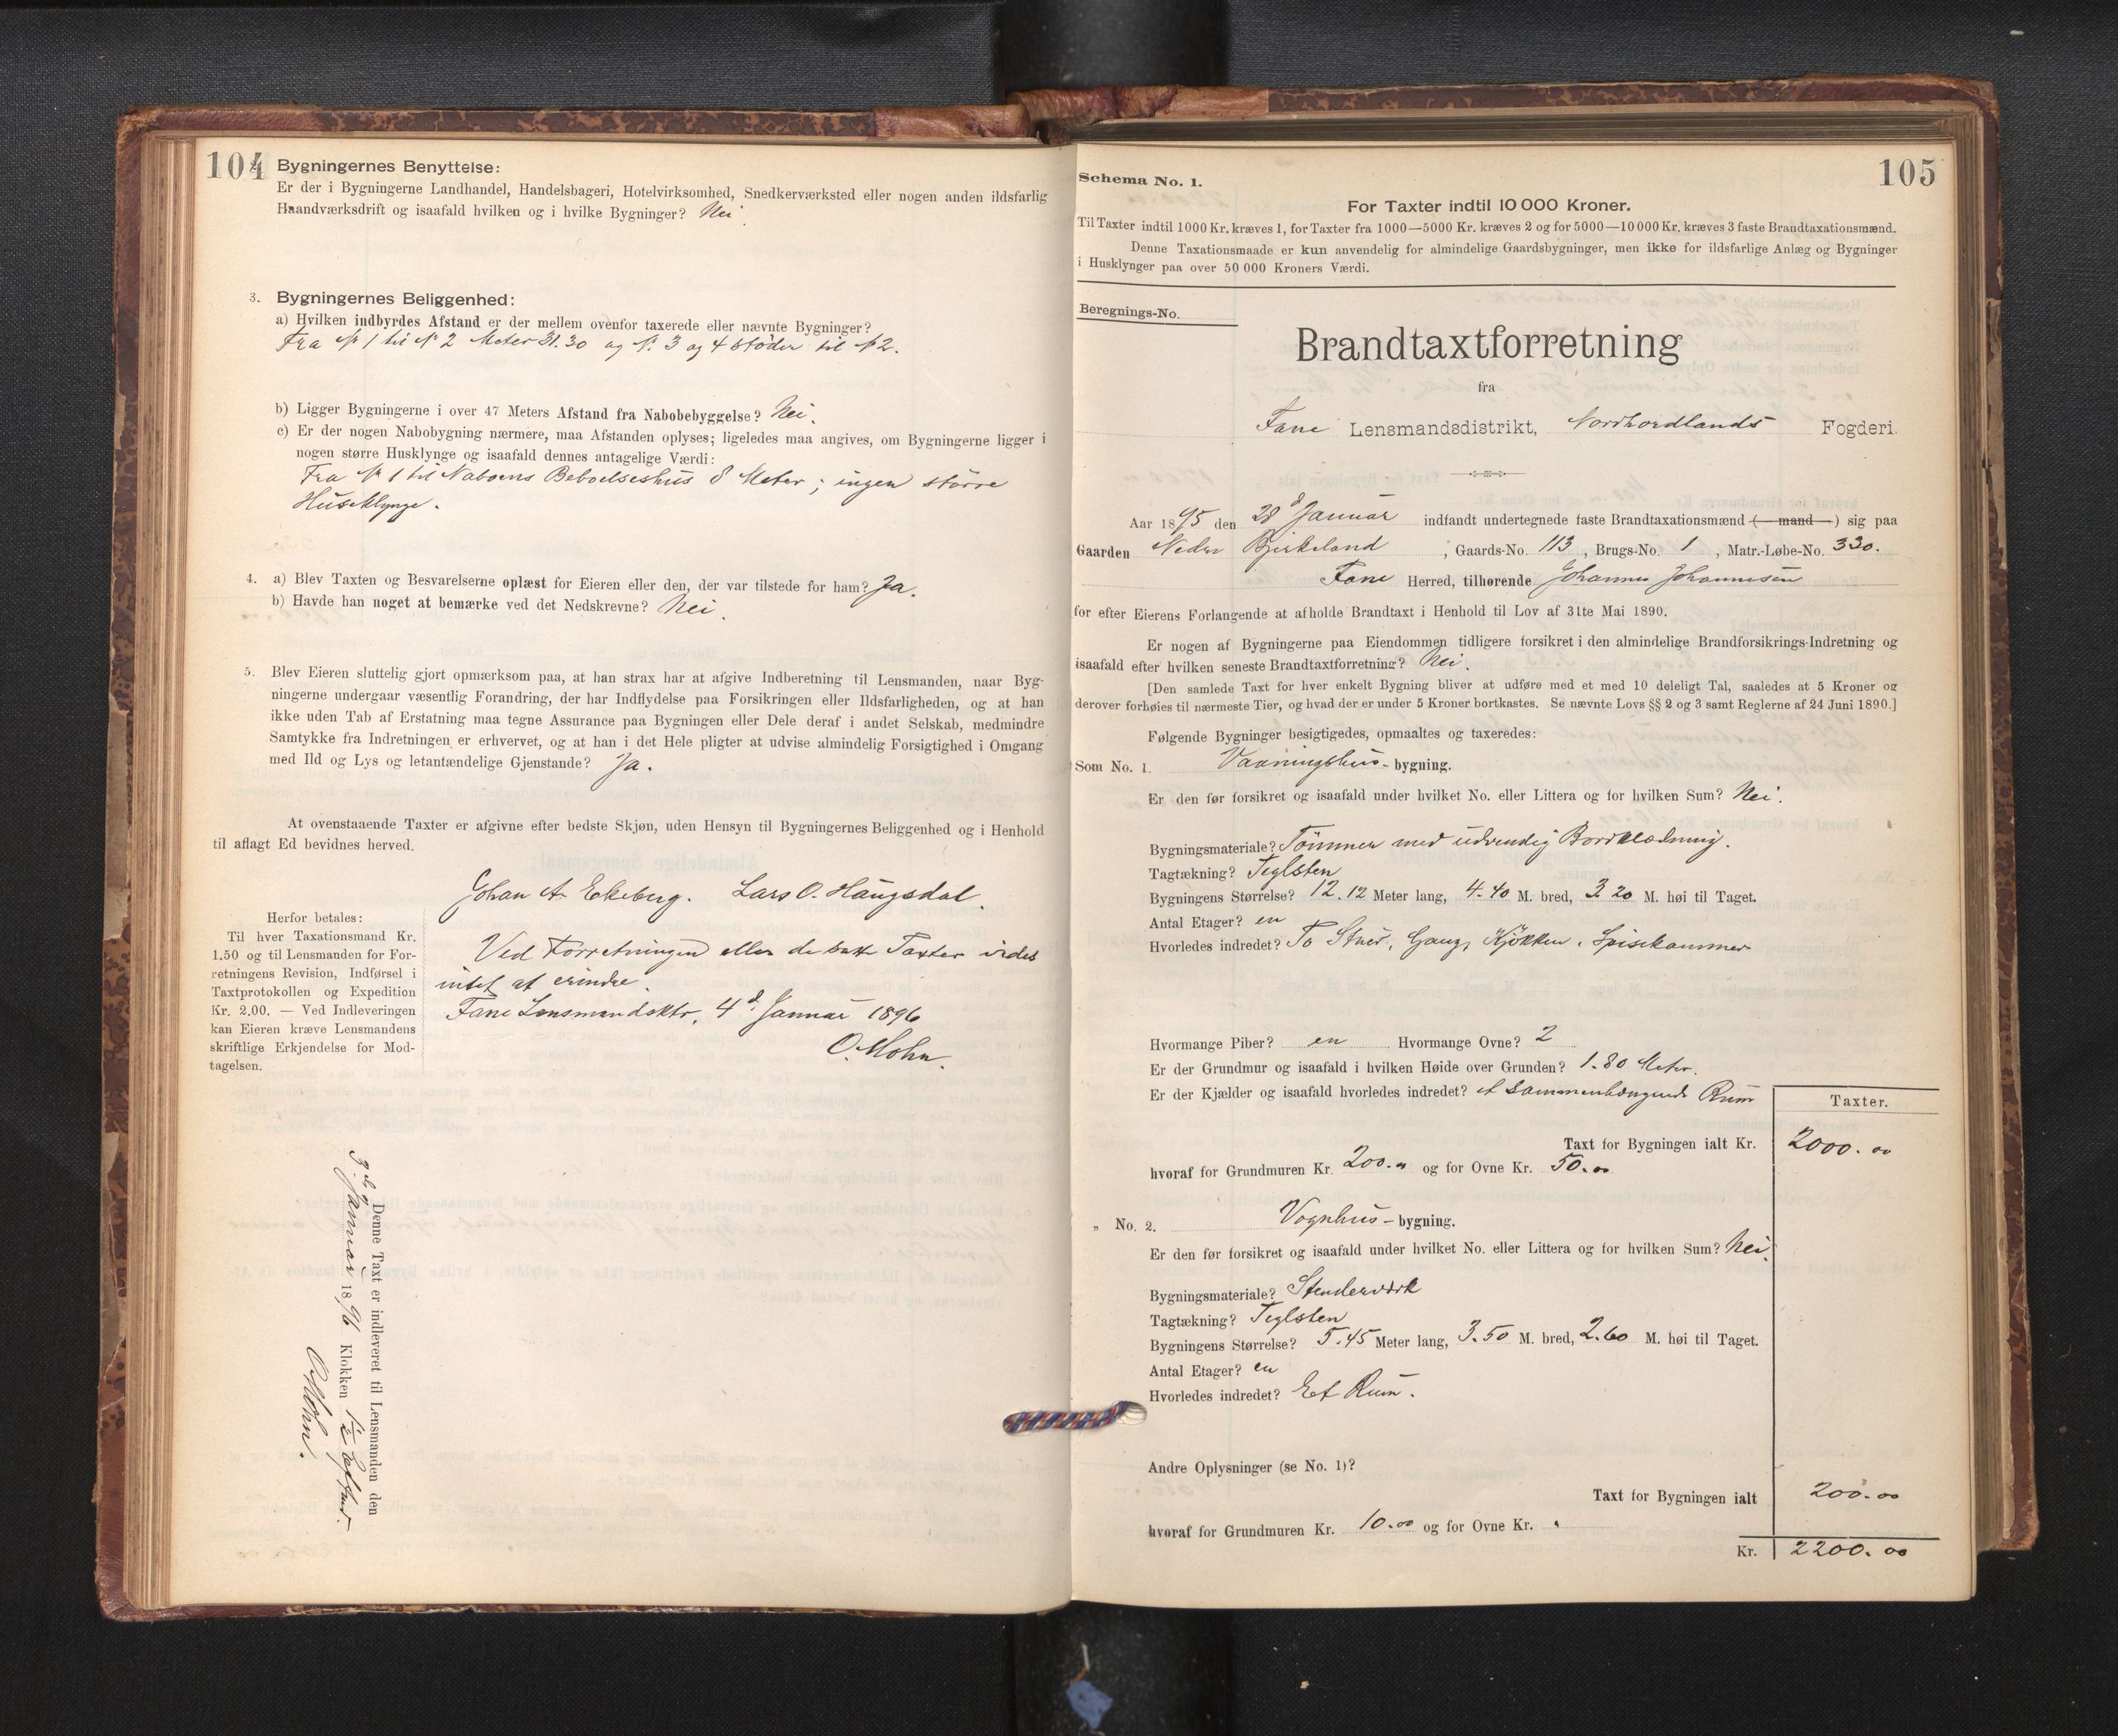 104
2. Bygningernes Benyttelse:
Er der i Bygningerne Landhandel, Handelsbageri, Hotelvirksomhed, Snedkerværksted eller nogen anden ildsfarlig
Haandværksdrift og isaafald hvilken og i hvilke Bygninger? Nei
3. Bygningernes Beliggenhed:
a) Hvilken indbyrdes Afstand er der mellem ovenfor taxerede eller nævnte Bygninger?
Fra № 1 til № 2 Meter 31.30 og №. 3 og 4 støder til № 2.
b) Ligger Bygningerne i over 47 Meters Afstand fra Nabobebyggelse? Nei.
c) Er der nogen Nabobygning nærmere, maa Afstanden oplyses; ligeledes maa angives, om Bygningerne ligger i
nogen større Husklynge og isaafald dennes antagelige Værdi:
Fra № 1 til Naboens Beboelseshus 8 Meter; ingen større
Huseklynge.
4. a) Blev Taxten og Besvarelserne oplæst for Eieren eller den, der var tilstede for ham? Ja.
b) Havde han noget at bemærke ved det Nedskrevne? Nei.
5. Blev Eieren sluttelig gjort opmærksom paa, at han strax har at afgive Indberetning til Lensmanden, naar Byg-
ningerne undergaar væsentlig Forandring, der har Indflydelse paa Forsikringen eller Ildsfarligheden, og at han
ikke uden Tab af Erstatning maa tegne Assurance paa Bygningen eller Dele deraf i andet Selskab, medmindre
Samtykke fra Indretningen er erhvervet, og at han i det Hele pligter at udvise almindelig Forsigtighed i Omgang
med Ild og Lys og letantændelige Gjenstande? Ja.
At ovenstaaende Taxter er afgivne efter bedste Skjøn, uden Hensyn til Bygningernes Beliggenhed og i Henhold
til aflagt Ed bevidnes herved.
Johan A. Ekeberg. Lars O. Haugsdal.
Herfor betales:
Til hver Taxationsmand Kr.
1.50 og til Lensmanden for For-
retningens Revision, Indførsel i
Taxtprotokollen og Expedition
Kr. 2.00. — Ved Indleveringen
kan Eieren kræve Lensmandens
skriftlige Erkjendelse for Mod-
tagelsen.
Ved Forretningen eller de satte Taxter vides
intet at erindre.
Fane Lensmandsktr, 4d Januar 1896
O. Mohn.
Denne Taxt er indleveret til Lensmanden den
3de Januar 1896 Klokken 1½ Efterm.
O. Mohn.
105
Schema No. 1.
For Taxter indtil 10 000 Kroner.
Til Taxter indtil 1000 Kr. kræves 1, for Taxter fra 1000—5000 Kr. kræves 2 og for 5000—10 000 Kr. kræves 3 faste Brandtaxationsmænd.
Denne Taxationsmaade er kun anvendelig for almindelige Gaardsbygninger, men ikke for ildsfarlige Anlæg og Bygninger
i Husklynger paa over 50 000 Kroners Værdi.
Beregnings-No.
Brandtaxtforretning
fra
Fane Lensmandsdistrikt, Nordhordlands Fogderi.
Aar 1895 den 28d Januar indfandt undertegnede faste Brandtaxationsmænd (—mand—) sig paa
Gaarden Nedre Bjirkeland, Gaards-No. 113, Brugs-No. 1, Matr.-Løbe-No. 330.
Fane Herred, tilhørende Johannes Johannesen
for efter Eierens Forlangende at afholde Brandtaxt i Henhold til Lov af 31te Mai 1890.
Er nogen af Bygningerne paa Eiendommen tidligere forsikret i den almindelige Brandforsikrings-Indretning og
isaafald efter hvilken seneste Brandtaxtforretning? Nei.
[Den samlede Taxt for hver enkelt Bygning bliver at udføre med et med 10 deleligt Tal, saaledes at 5 Kroner og
derover forhøies til nærmeste Tier, og hvad der er under 5 Kroner bortkastes. Se nævnte Lovs §§ 2 og 3 samt Reglerne af 24 Juni 1890.]
Følgende Bygninger besigtigedes, opmaaltes og taxeredes:
Som No. 1. Vaaningshus-bygning.
Er den før forsikret og isaafald under hvilket No. eller Littera og for hvilken Sum? Nei.
Bygningsmateriale? Tømmer med udvendig Bordklædning.
Tagtækning? Teglsten
Bygningens Størrelse? 12.12 Meter lang, 4.40 M. bred, 3.20 M. høi til Taget.
Antal Etager? en
Hvorledes indredet? To Stuer, Gang, Kjøkken, Spisekammer
Hvormange Piber? en Hvormange Ovne? 2
Er der Grundmur og isaafald i hvilken Høide over Grunden? 1.80 Meter.
Er der Kjælder og isaafald hvorledes indredet? et sammenhængende Rum
Taxter.
Taxt for Bygningen ialt Kr. 2000.00
hvoraf for Grundmuren Kr. 200.00 og for Ovne Kr. 50.00
" No. 2. Vognhus-bygning.
Er den før forsikret og isaafald under hvilket No. eller Littera og for hvilken Sum? Nei.
Bygningsmateriale? Stenderværk
Tagtækning? Teglsten
Bygningens Størrelse? 5.45 Meter lang, 3.50 M. bred, 2.60 M. høi til Taget.
Antal Etager? en
Hvorledes indredet? Et Rum.
Andre Oplysninger (se No. 1)?
Taxt for Bygningen ialt 200.00
hvoraf for Grundmuren Kr. 10.00 og for Ovne Kr.
Kr. 2200.00